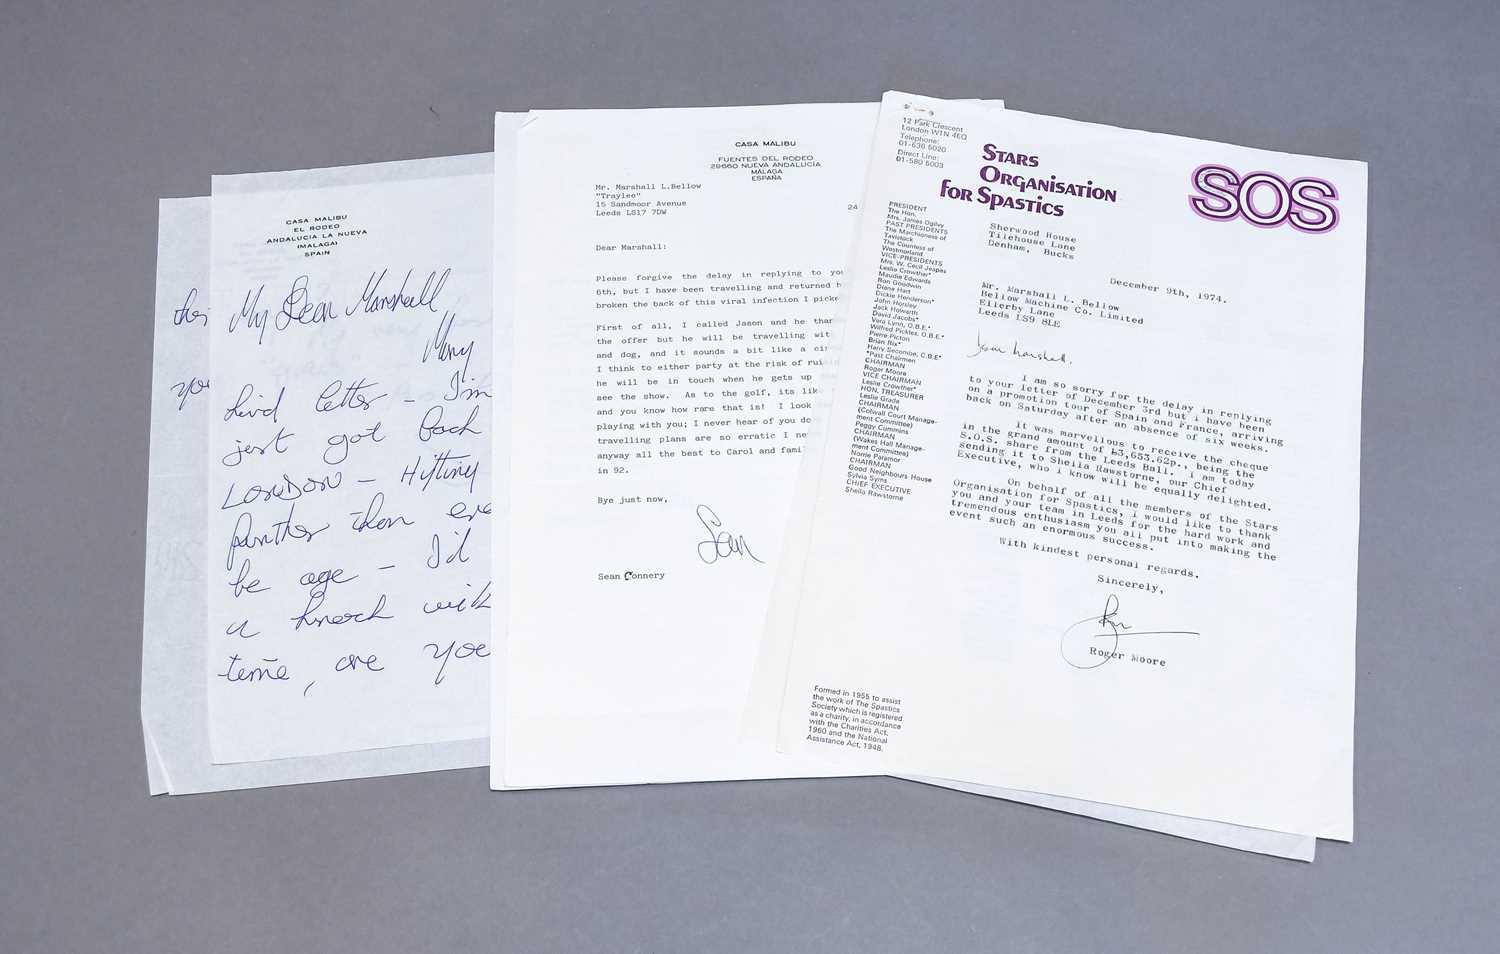 CASA MALIBU
EL RODEO
ANDALUCIA LA NUEVA
(MALAGA)
SPAIN
My Dear Marshall
Many
kind letter – I'm
just got back
LONDON – Hitting
further then eve
be age – I'd
a knock with
time, are you
yo
CASA MALIBU
FUENTES DEL RODEO
29660 NUEVA ANDALUCÍA
MÁLAGA
ESPAÑA
Mr. Marshall L.Bellow
"Traylee"
15 Sandmoor Avenue
Leeds LS17 7DW
24
Dear Marshall:
Please forgive the delay in replying to you
6th, but I have been travelling and returned h
broken the back of this viral infection I picke
First of all, I called Jason and he than
the offer but he will be travelling wit
and dog, and it sounds a bit like a cir
I think to either party at the risk of ruin
he will be in touch when he gets up
see the show. As to the golf, its like
and you know how rare that is! I look
playing with you; I never hear of you do
travelling plans are so erratic I ne
anyway all the best to Carol and fami
in 92.
Bye just now,
Sean
Sean Connery
12 Park Crescent
London W1N 4EQ
Telephone:
01-636 5020
Direct Line:
01-580 5003
STARS
ORGANISATION
FOR SPASTICS
SOS
PRESIDENT
The Hon.
Mrs. James Ogilvy
PAST PRESIDENTS
The Marchioness of
Tavistock
The Countess of
Westmorland
VICE-PRESIDENTS
Mrs. W. Cecil Jeapes
Leslie Crowther*
Maudie Edwards
Ron Goodwin
Diane Hart
Dickie Henderson*
John Horsley
Jack Howarth
David Jacobs*
Vera Lynn, O.B.E.*
Wilfred Pickles, O.B.E.*
Pierre Picton
Brian Rix*
Harry Secombe, C.B.E*
*Past Chairmen
CHAIRMAN
Roger Moore
VICE CHAIRMAN
Leslie Crowther*
HON. TREASURER
Leslie Grade
CHAIRMAN
(Colwall Court Manage-
ment Committee)
Peggy Cummins
CHAIRMAN
(Wakes Hall Manage-
ment Committee)
Norrie Paramor
CHAIRMAN
Good Neighbours House
Sylvia Syms
CHIEF EXECUTIVE
Sheila Rawstorne
Sherwood House
Tilehouse Lane
Denham, Bucks
December 9th, 1974.
Mr. Marshall L. Bellow
Bellow Machine Co. Limited
Ellerby Lane
Leeds LS9 8LE
Dear Marshall.
I am so sorry for the delay in replying
to your letter of December 3rd but i have been
on a promotion tour of Spain and France, arriving
back on Saturday after an absence of six weeks.
It was marvellous to receive the cheque
in the grand amount of £3,653.62p., being the
S.O.S. share from the Leeds Ball. i am today
sending it to Sheila Rawstorne, our Chief
Executive, who i know will be equally delighted.
On behalf of all the members of the Stars
Organisation for Spastics, i would like to thank
you and your team in Leeds for the hard work and
tremendous enthusiasm you all put into making the
event such an enormous success.
With kindest personal regards.
Sincerely,
Roger Moore
Formed in 1955 to assist
the work of The Spastics
Society which is registered
as a charity, in accordance
with the Charities Act,
1960 and the National
Assistance Act, 1948.